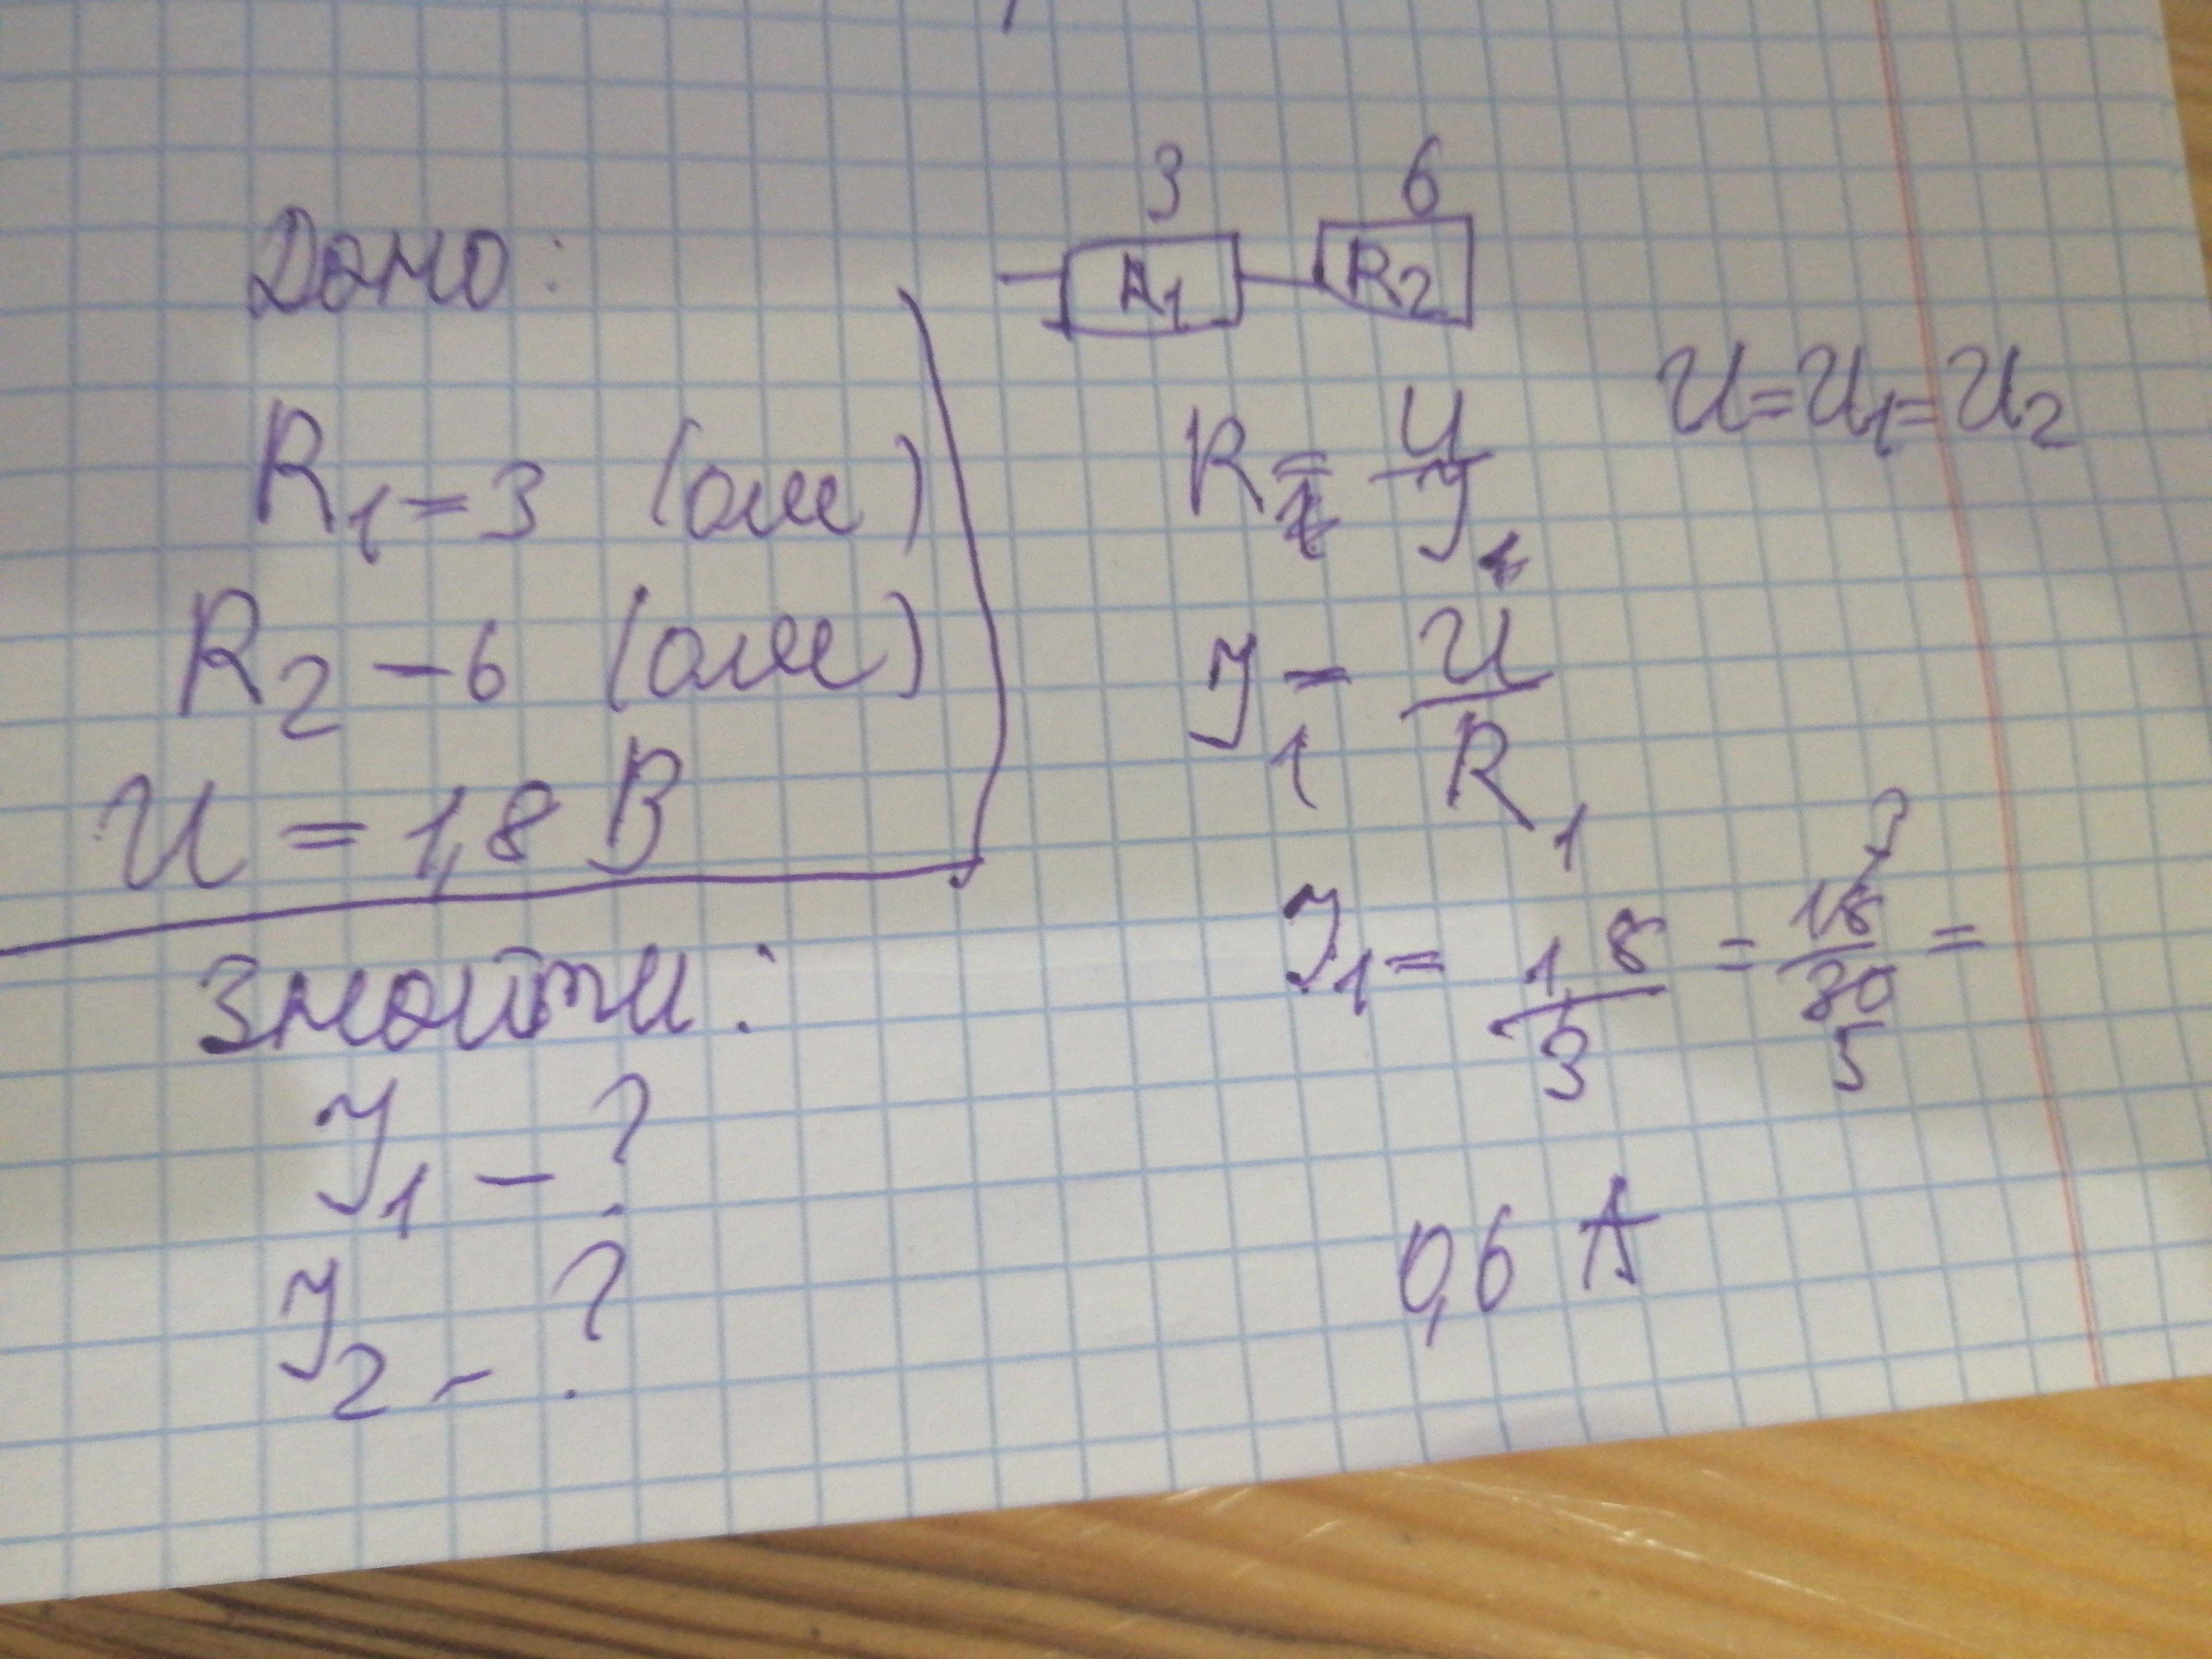 Дано:
R1 = 3 (ом)
R2 – 6 (ом)
U = 1,8 В
Знайти:
I1 – ?
I2 – ?
3 6
R1 R2
R = U/I
U = U1 = U2
I1 = U/R1
I1 = 1,8/3 = 18/30 =
3
5
0,6 А